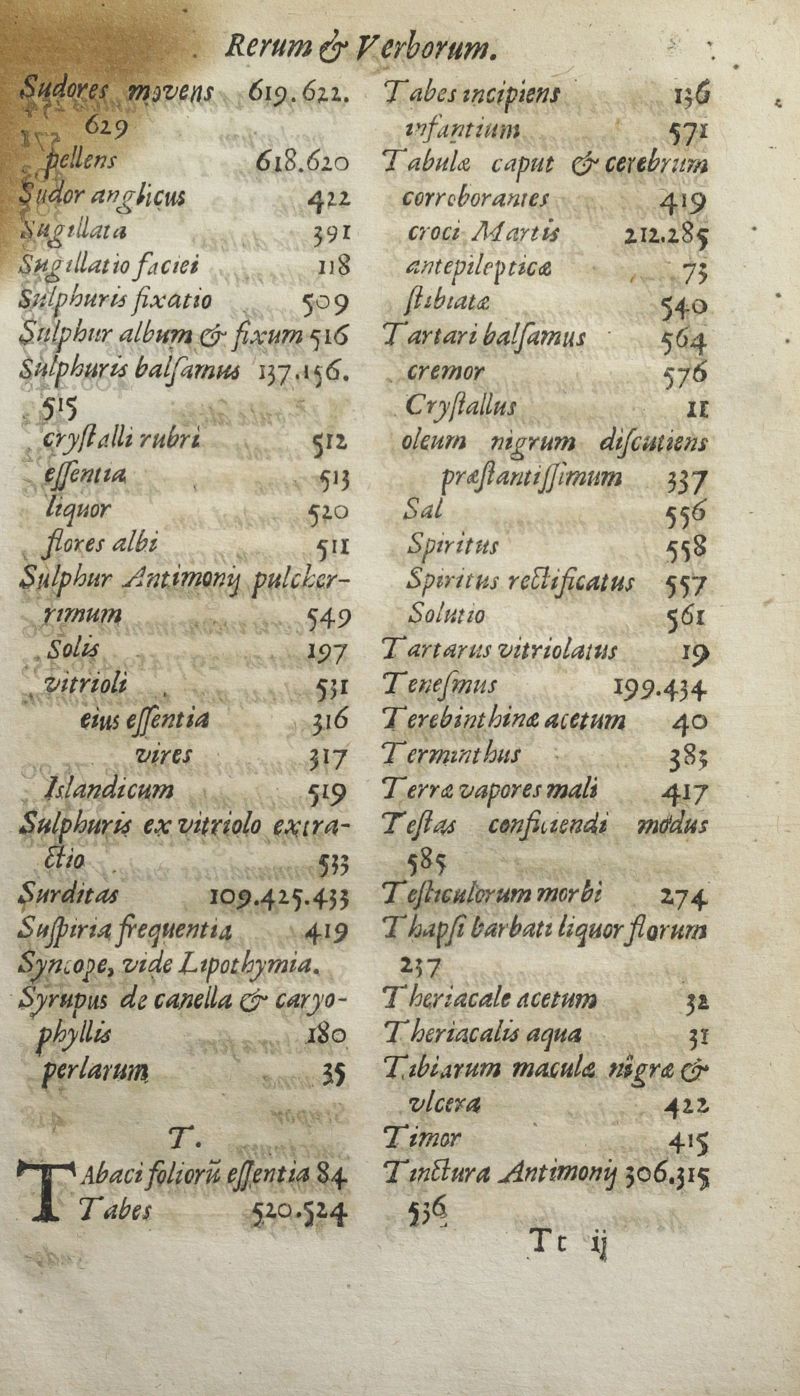 Rerum & Verborum.
Sudores movens 619.622.
629
pellens 618.620
Sudor anglicus 422
Sugillata 391
Sugillatio faciei 118
Sulphuris fixatio 509
Sulphur album & fixum 516
Sulphuris balſamus 137.156.
515
cryſtalli rubri 512
eſſentia 513
liquor 520
flores albi 511
Sulphur Antimonij pulcher-
rimum 549
Solis 197
vitrioli 531
eius eſſentia 316
vires 317
Islandicum 519
Sulphuris ex vitriolo extra-
ctio 533
Surditas 109.425.433
Suſpiria frequentia 419
Syncope, vide Lipothymia.
Syrupus de canella & caryo-
phyllis 180
perlarum 35
T.
TAbaci foliorū eſſentia 84
Tabes 520.524
Tabes incipiens 136
infantium 571
Tabulæ caput & cerebrum
corroborantes 419
croci Martis 212.285
antepilepticæ 73
ſtibiatæ 540
Tartari balſamus 564
cremor 576
Cryſtallus 11
oleum nigrum diſcutiens
præſtantiſſimum 337
Sal 556
Spiritus 558
Spiritus rectificatus 557
Solutio 561
Tartarus vitriolatus 19
Teneſmus 199.434
Terebinthinæ acetum 40
Terminthus 383
Terræ vapores mali 417
Teſtas conficiendi modus
585
Teſticulorum morbi 274
Thapſi barbati liquor florum
237
Theriacale acetum 32
Theriacalis aqua 31
Tibiarum maculæ nigræ &
vlcera 422
Timor 415
Tinctura Antimonij 306.315
536
Tt ij